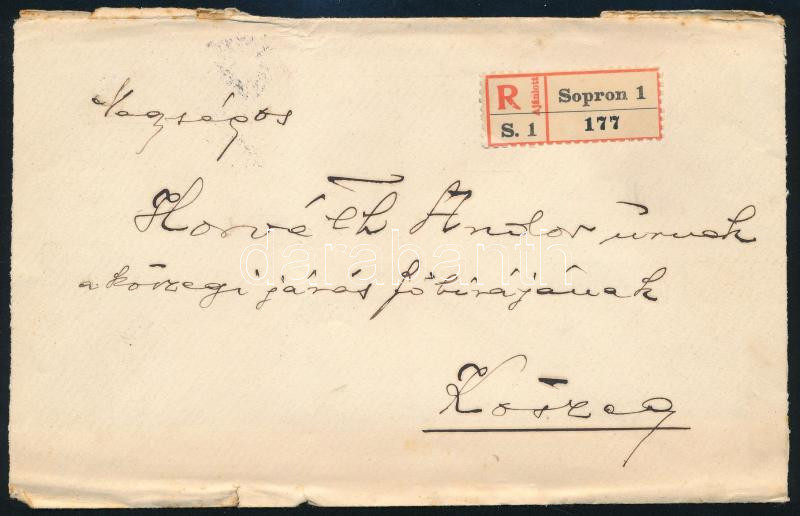 Nagságos
R Ajánlott Sopron 1
S. 1 177
Horváth Andor úrnak
a kőszegi járás főbirájának
Kőszeg
darabanth